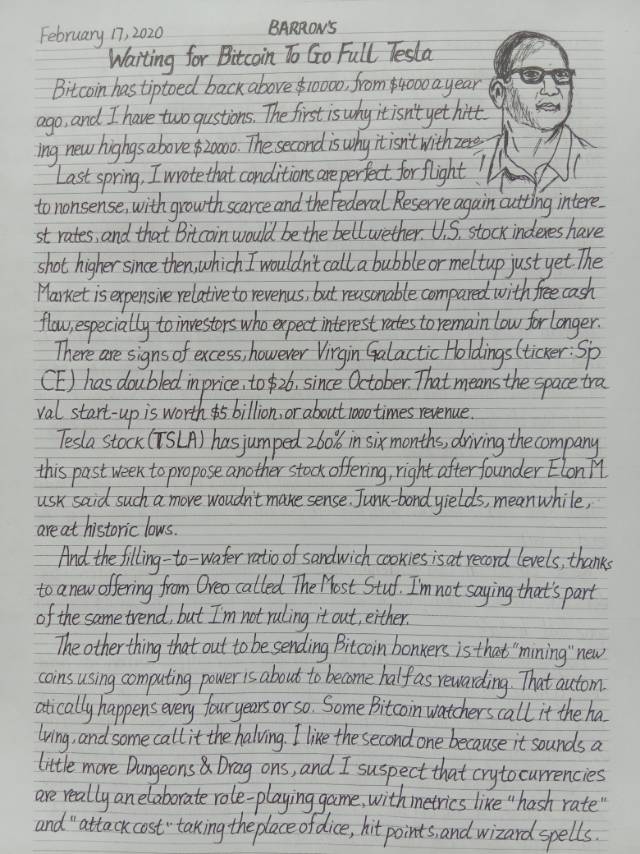 February 17, 2020 BARRON'S
Waiting for Bitcoin To Go Full Tesla
Bitcoin has tiptoed back above $10000, from $4000 a year
ago, and I have two qustions. The first is why it isn't yet hitt-
ing new highgs above $20000. The second is why it isn't with zero.
Last spring, I wrote that conditions are perfect for flight
to nonsense, with growth scarce and the Federal Reserve again cutting intere-
st rates, and that Bitcoin would be the bellwether. U.S. stock indexes have
shot higher since then, which I wouldn't call a bubble or meltup just yet. The
Market is expensive relative to revenus, but reasonable compared with free cash
flow, especially to investors who expect interest rates to remain low for longer.
There are signs of excess, however Virgin Galactic Holdings (ticker: Sp
CE) has doubled in price, to $26, since October. That means the space tra
val start-up is worth $5 billion, or about 1000 times revenue.
Tesla stock (TSLA) has jumped 260% in six months, driving the company
this past week to propose another stock offering, right after founder Elon M
usk said such a move woudn't make sense. Junk-bond yields, meanwhile,
are at historic lows.
And the filling-to-wafer ratio of sandwich cookies is at record levels, thanks
to a new offering from Oreo called The Most Stuf. I'm not saying that's part
of the same trend, but I'm not ruling it out, either.
The other thing that out to be sending Bitcoin bonkers is that "mining" new
coins using computing power is about to become half as rewarding. That autom-
atically happens every four years or so. Some Bitcoin watchers call it the ha
lving, and some call it the halving. I like the second one because it sounds a
little more Dungeons & Drag ons, and I suspect that crytocurrencies
are really an elaborate role-playing game, with metrics like "hash rate"
and "attack cost" taking the place of dice, hit points, and wizard spells.